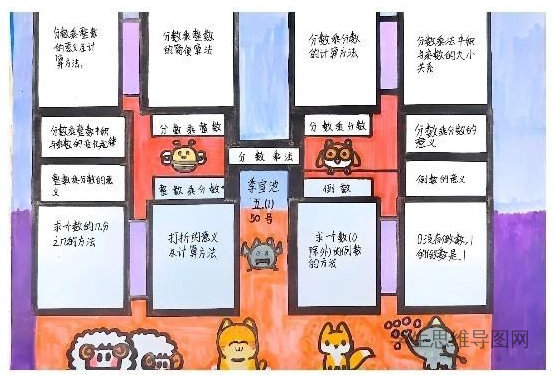 分数乘整数
的意义及计
算方法。
分数乘整数
的简便算法
分数乘分数
的计算方法
分数乘法中积
与乘数的大小
关系
分数乘整数中积
与乘数的变化规律
分数乘整数
分数乘分数
分数乘分数的
意义
分数乘法
整数乘分数的意
义
整数乘分数
李宜池
五.(1)
50号
倒数
倒数的意义
求一个数的几分
之几的方法
打折的意义
及计算方法
求一个数(0
除外)的倒数
的方法
0没有倒数,1
的倒数是1
思维导图网